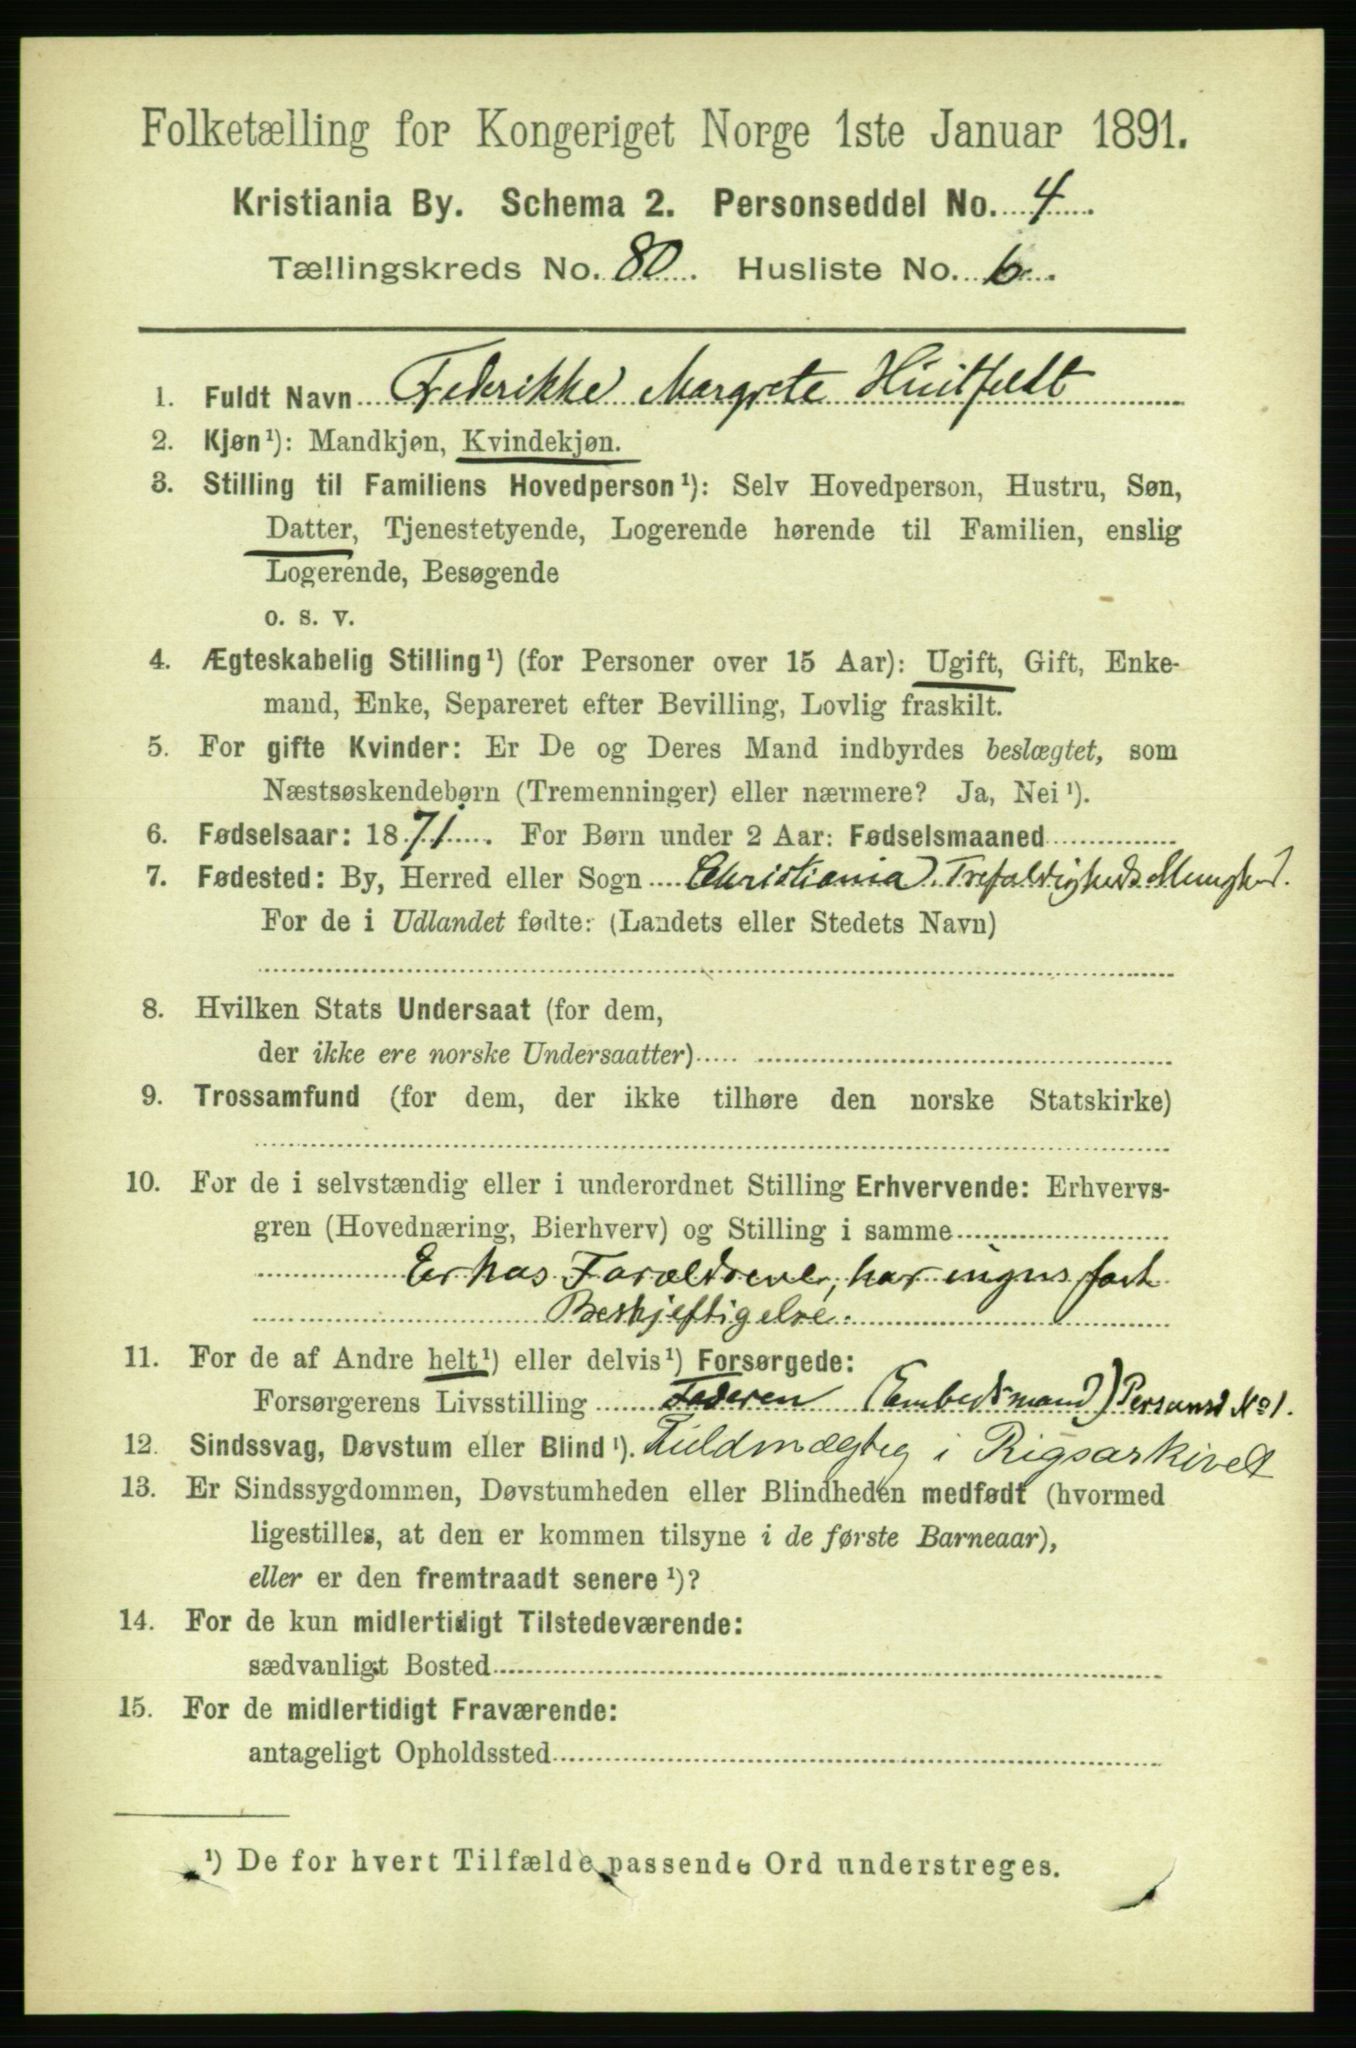 Folketælling for Kongeriget Norge 1ste Januar 1891.
Kristiania By. Schema 2. Personseddel No. 4
Tællingskreds No. 80. Husliste No. 6.
1. Fuldt Navn Federikke Margrete Huitfeldt
2. Kjøn¹): Mandkjøn, Kvindekjøn.
3. Stilling til Familiens Hovedperson¹): Selv Hovedperson, Hustru, Søn,
Datter, Tjenestetyende, Logerende hørende til Familien, enslig
Logerende, Besøgende
o. s. v.
4. Ægteskabelig Stilling¹) (for Personer over 15 Aar): Ugift, Gift, Enke-
mand, Enke, Separeret efter Bevilling, Lovlig fraskilt.
5. For gifte Kvinder: Er De og Deres Mand indbyrdes beslægtet, som
Næstsøskendebørn (Tremenninger) eller nærmere? Ja, Nei¹).
6. Fødselsaar: 1871. For Børn under 2 Aar: Fødselsmaaned
7. Fødested: By, Herred eller Sogn Christiania, Trefoldigheds Menighed.
For de i Udlandet fødte: (Landets eller Stedets Navn)
8. Hvilken Stats Undersaat (for dem,
der ikke ere norske Undersaatter)
9. Trossamfund (for dem, der ikke tilhøre den norske Statskirke)
10. For de i selvstændig eller i underordnet Stilling Erhvervende: Erhvervs-
gren (Hovednæring, Bierhverv) og Stilling i samme
Er hos Forældrene, har ingen fast
Beskjeftigelse.
11. For de af Andre helt¹) eller delvis¹) Forsørgede:
Forsørgerens Livsstilling Faderen (Embedsmand) Personsd No 1.
12. Sindssvag, Døvstum eller Blind¹). Fuldmægtig i Rigsarkivet
13. Er Sindssygdommen, Døvstumheden eller Blindheden medfødt (hvormed
ligestilles, at den er kommen tilsyne i de første Barneaar),
eller er den fremtraadt senere¹)?
14. For de kun midlertidigt Tilstedeværende:
sædvanligt Bosted
15. For de midlertidigt Fraværende:
antageligt Opholdssted
¹) De for hvert Tilfælde passende Ord understreges.